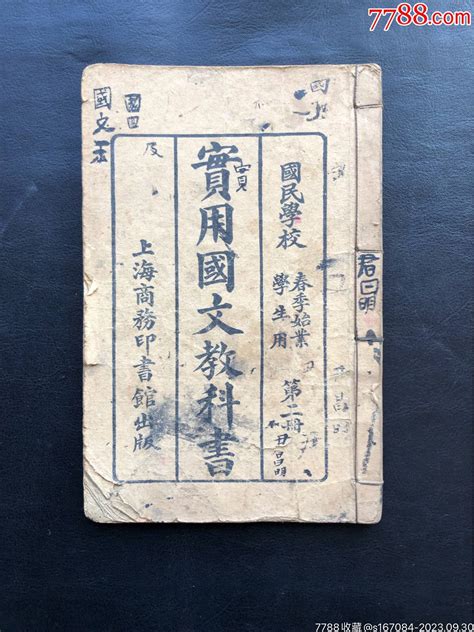 7788.com
國
國文
國民學校
春季始業
學生用
第二冊
尹昌明
實用國文教科書
實
上海商務印書館出版
及
君
明
昌
7788收藏@s167084-2023.09.30